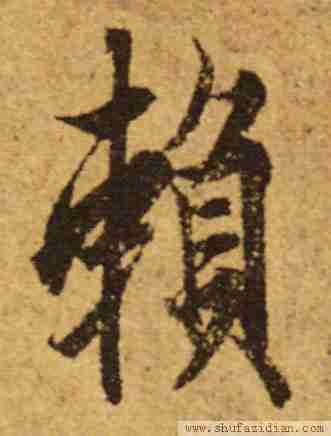 賴
www.shufazidian.com